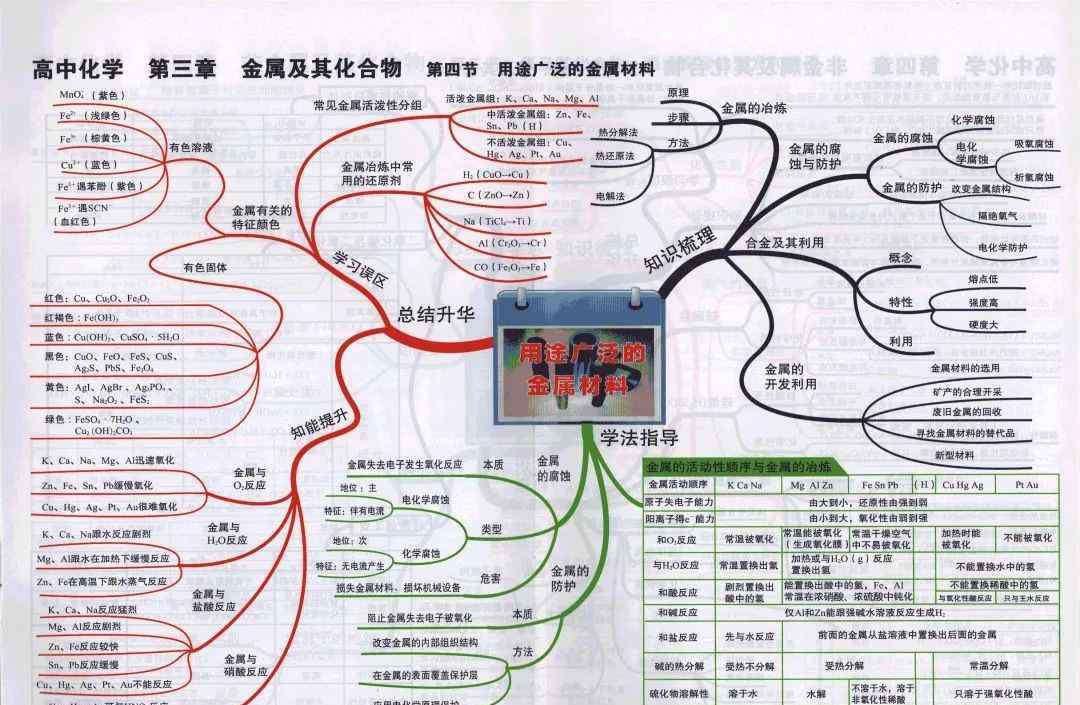 高中化学 第三章 金属及其化合物 第四节 用途广泛的金属材料
MnO₄⁻（紫色）
Fe²⁺（浅绿色）
Fe³⁺（棕黄色）
Cu²⁺（蓝色）
Fe³⁺遇苯酚（紫色）
Fe³⁺遇SCN⁻
（血红色）
有色溶液
金属有关的
特征颜色
有色固体
红色：Cu、Cu₂O、Fe₂O₃
红褐色：Fe(OH)₃
蓝色：Cu(OH)₂、CuSO₄·5H₂O
黑色：CuO、FeO、FeS、CuS、
Ag₂S、PbS、Fe₃O₄
黄色：AgI、AgBr、Ag₃PO₄、
S、Na₂O₂、FeS₂
绿色：FeSO₄·7H₂O、
Cu₂(OH)₂CO₃
常见金属活泼性分组
活泼金属组：K、Ca、Na、Mg、Al
中活泼金属组：Zn、Fe、
Sn、Pb（H）
不活泼金属组：Cu、
Hg、Ag、Pt、Au
金属冶炼中常
用的还原剂
H₂（CuO→Cu）
C（ZnO→Zn）
Na（TiCl₄→Ti）
Al（Cr₂O₃→Cr）
CO（Fe₂O₃→Fe）
学习误区
总结升华
知能提升
K、Ca、Na、Mg、Al迅速氧化
Zn、Fe、Sn、Pb缓慢氧化
Cu、Hg、Ag、Pt、Au很难氧化
金属与
O₂反应
K、Ca、Na跟水反应剧烈
Mg、Al跟水在加热下缓慢反应
Zn、Fe在高温下跟水蒸气反应
金属与
H₂O反应
K、Ca、Na反应猛烈
Mg、Al反应剧烈
Zn、Fe反应较快
Sn、Pb反应缓慢
Cu、Hg、Ag、Pt、Au不能反应
金属与
盐酸反应
金属与
硝酸反应
用途广泛的
金属材料
知识梳理
原理
步骤
方法
金属的冶炼
热分解法
热还原法
电解法
金属的腐
蚀与防护
金属的腐蚀
化学腐蚀
电化
学腐蚀
吸氧腐蚀
析氢腐蚀
金属的防护
改变金属结构
隔绝氧气
电化学防护
合金及其利用
概念
特性
熔点低
强度高
硬度大
利用
金属的
开发利用
金属材料的选用
矿产的合理开采
废旧金属的回收
寻找金属材料的替代品
新型材料
学法指导
金属
的腐蚀
金属失去电子发生氧化反应
本质
地位：主
特征：伴有电流
电化学腐蚀
地位：次
特征：无电流产生
化学腐蚀
类型
损失金属材料、损坏机械设备
危害
金属的
防护
阻止金属失去电子被氧化
本质
改变金属的内部组织结构
在金属的表面覆盖保护层
应用电化学原理保护
方法
金属的活动性顺序与金属的冶炼
金属活动顺序 K Ca Na Mg Al Zn Fe Sn Pb (H) Cu Hg Ag Pt Au
原子失电子能力 由大到小，还原性由强到弱
阳离子得e⁻能力 由小到大，氧化性由弱到强
和O₂反应 常温被氧化 常温能被氧化（生成氧化膜） 常温干燥空气中不易被氧化 加热时能被氧化 不能被氧化
与H₂O反应 常温置换出氢 加热或与H₂O（g）反应置换出氢 不能置换水中的氢
和酸反应 剧烈置换出酸中的氢 能置换出酸中的氢，Fe、Al常温在浓硝酸、浓硫酸中钝化 不能置换稀酸中的氢 与氧化性酸反应 只与王水反应
和碱反应 仅Al和Zn能跟强碱水溶液反应生成H₂
和盐反应 先与水反应 前面的金属从盐溶液中置换出后面的金属
碱的热分解 受热不分解 受热分解 常温分解
硫化物溶解性 溶于水 水解 不溶于水，溶于非氧化性稀酸 只溶于强氧化性酸